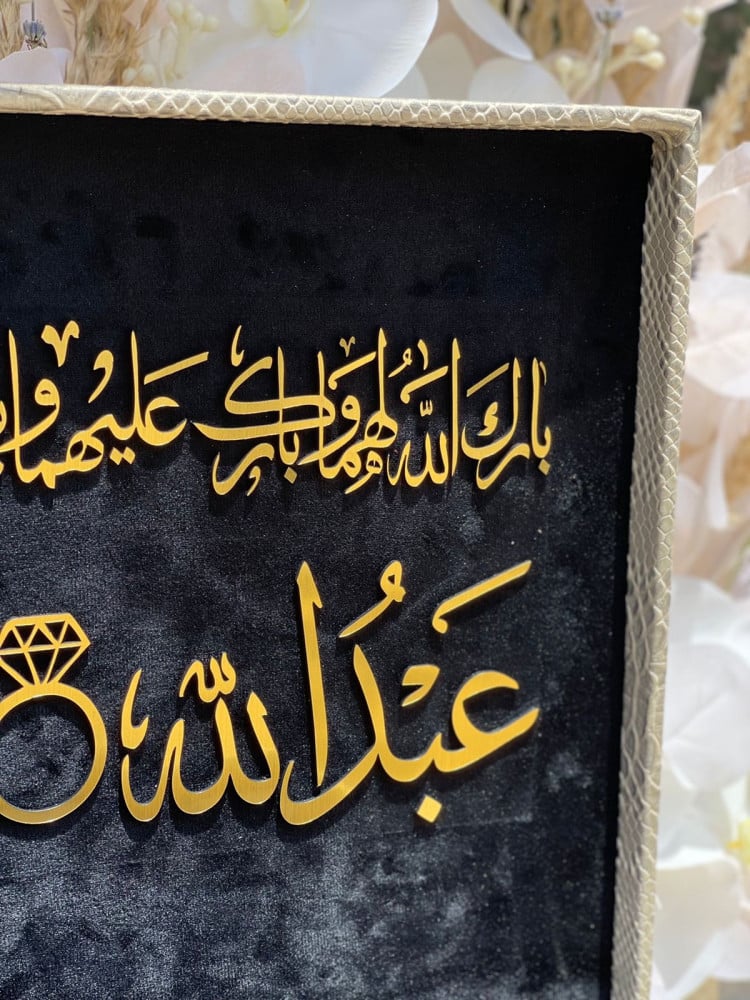 بارك الله لهما وبارك عليهما
عَبدُالله